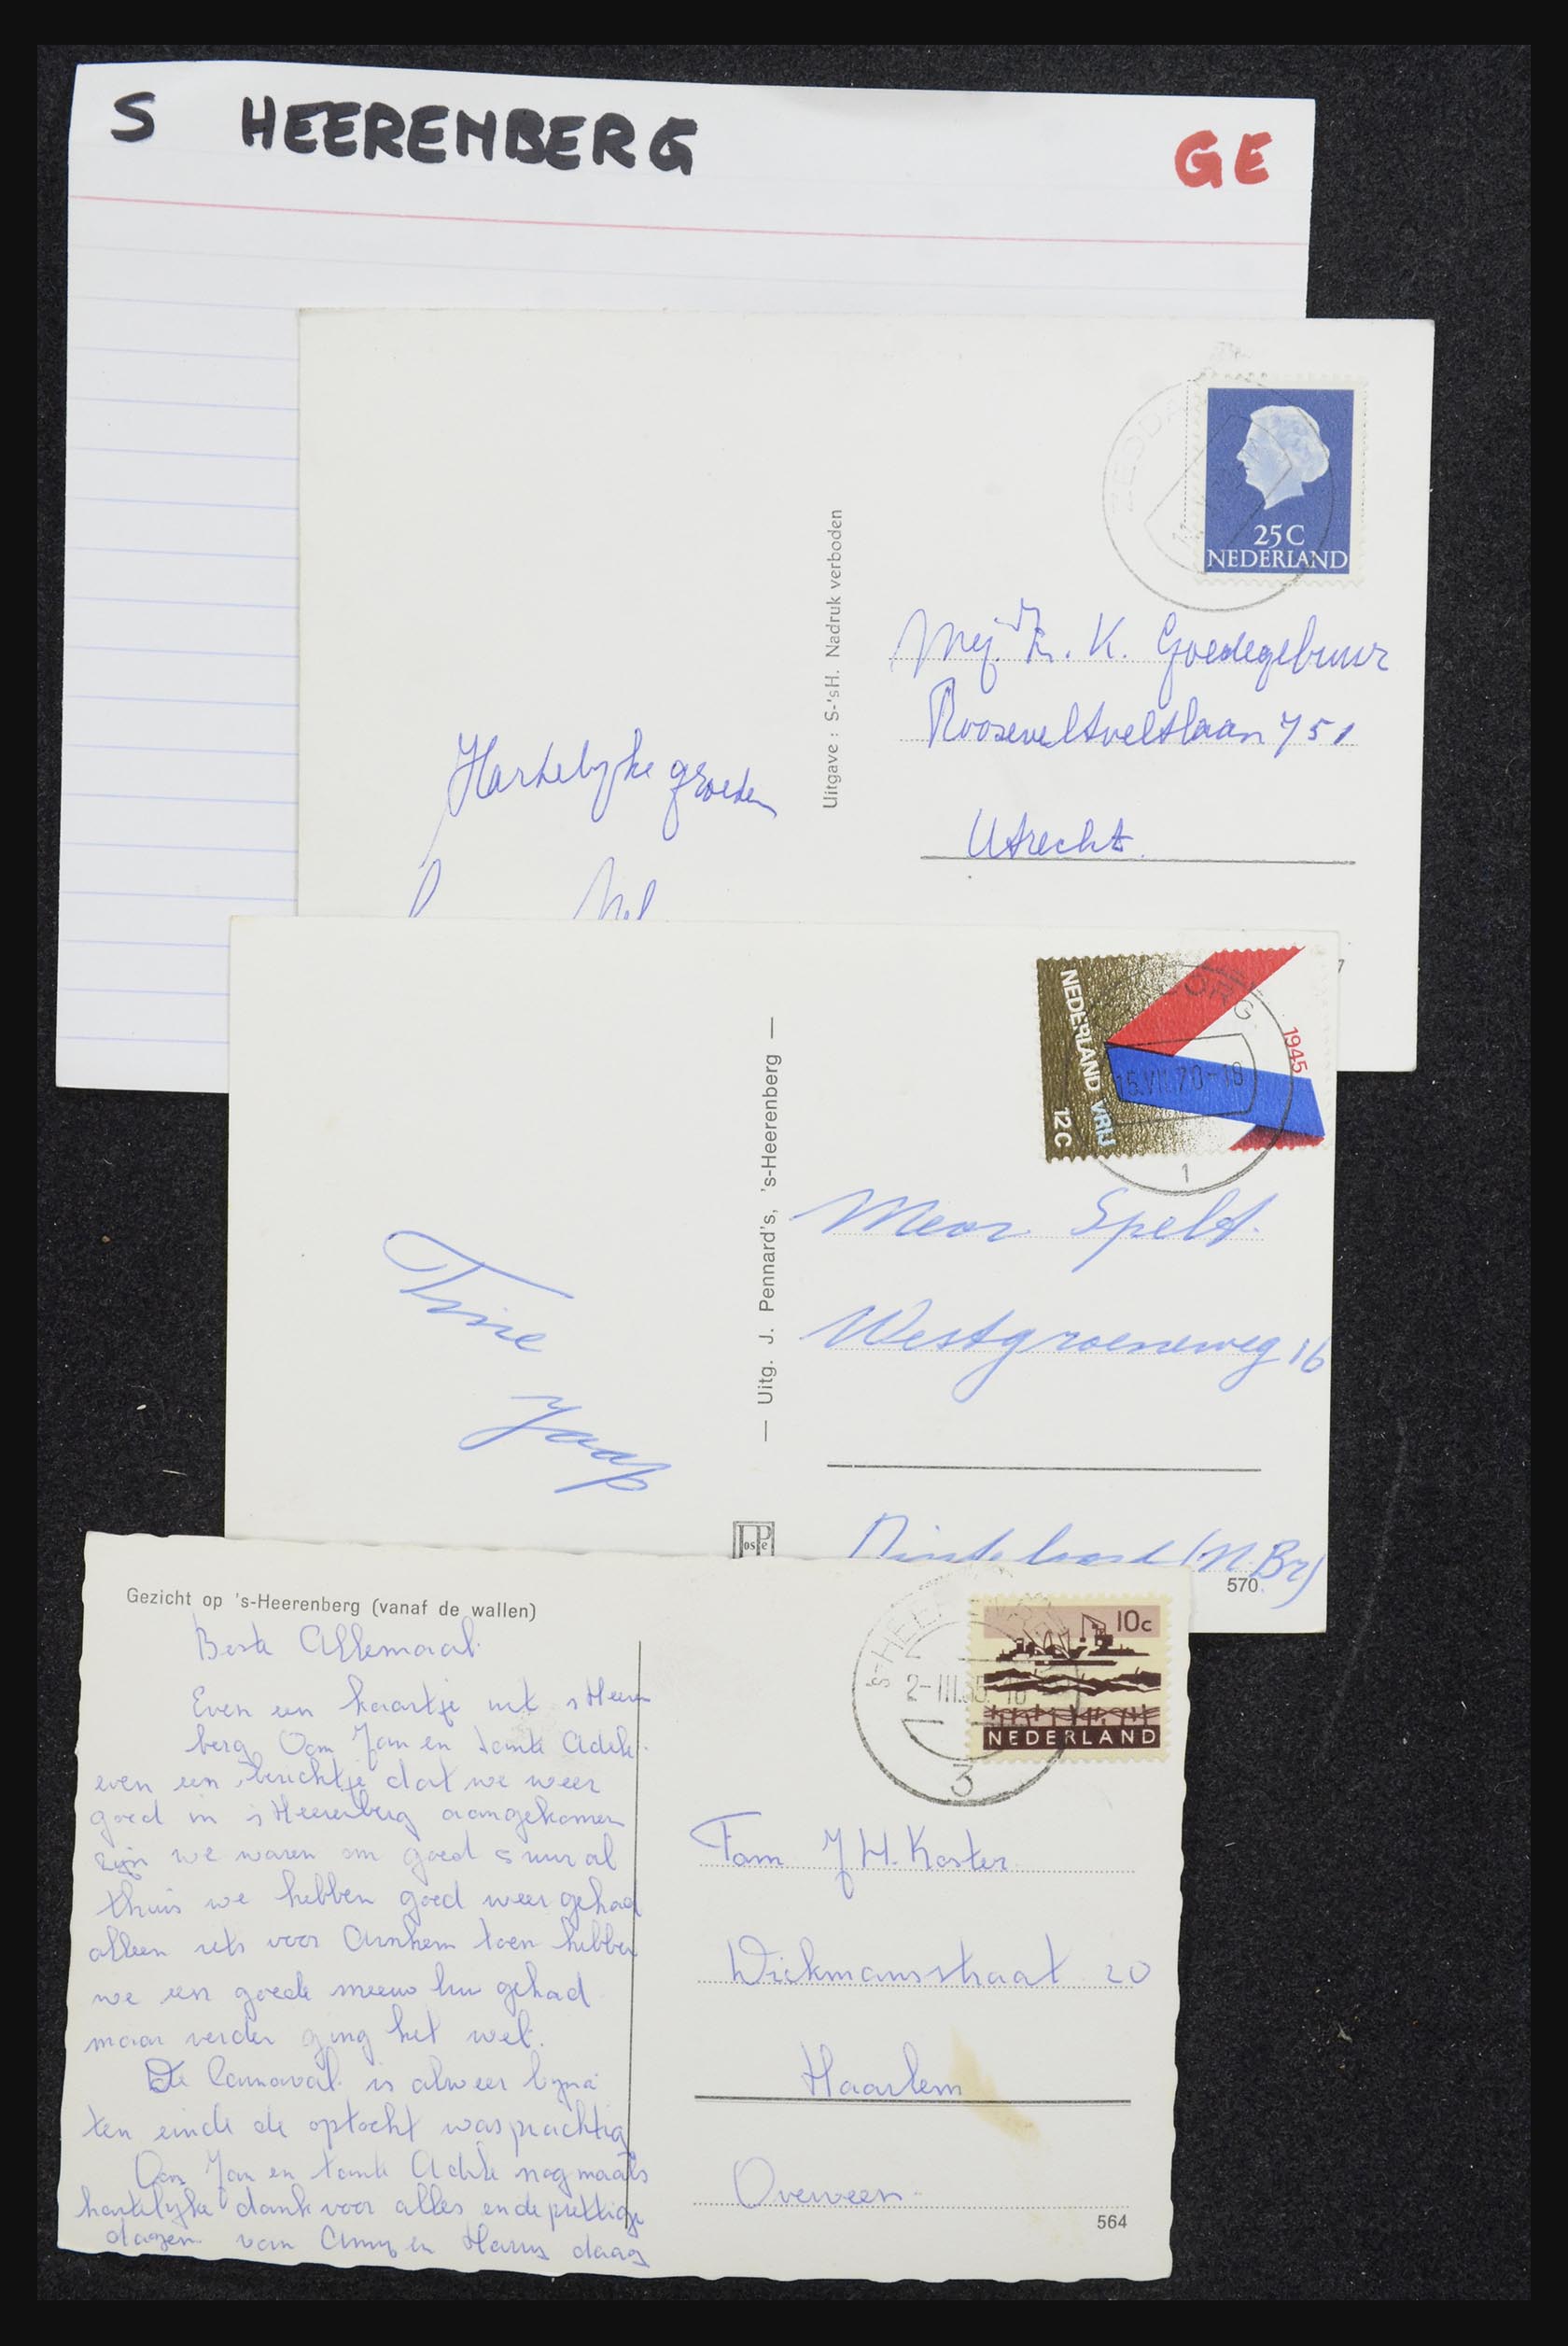 S HEERENBERG
GE
ZEDDA
25C
NEDERLAND
Uitgave: S-'sH. Nadruk verboden
Mej. K. Goedegebuur
Rooseveltveltlaan 751
Utrecht.
Hartelijke groeten
7
NEDERLAND VRIJ
12C
1945
15.VII.70-18
1
— Uitg. J. Pennard's, 's-Heerenberg —
Mevr. Spelt.
Westgroeneweg 16
Dinteloord (N.Br)
Trine
Jaap
JosPe
570
Gezicht op 's-Heerenberg (vanaf de wallen)
10c
NEDERLAND
's-HEER
2-III.65.
3
Beste Allemaal.
Even een kaartje uit s Heeren
berg Oom Jan en tante Adèle.
even een berichtje dat we weer
goed in s Heerenberg aangekomen
zijn we waren om goed 5 uur al
thuis we hebben goed weer gehad
alleen iets voor Arnhem toen hebben
we een goede meeuw bui gehad
maar verder ging het wel.
De Carnaval is alweer bijna
ten einde de optocht was prachtig
Oom Jan en tante Adèle nogmaals
hartelijke dank voor alles en de prettige
dagen van Anny en Harry daag
Fam J H. Koster
Wickmansstraat 20
Haarlem
Overveen.
564